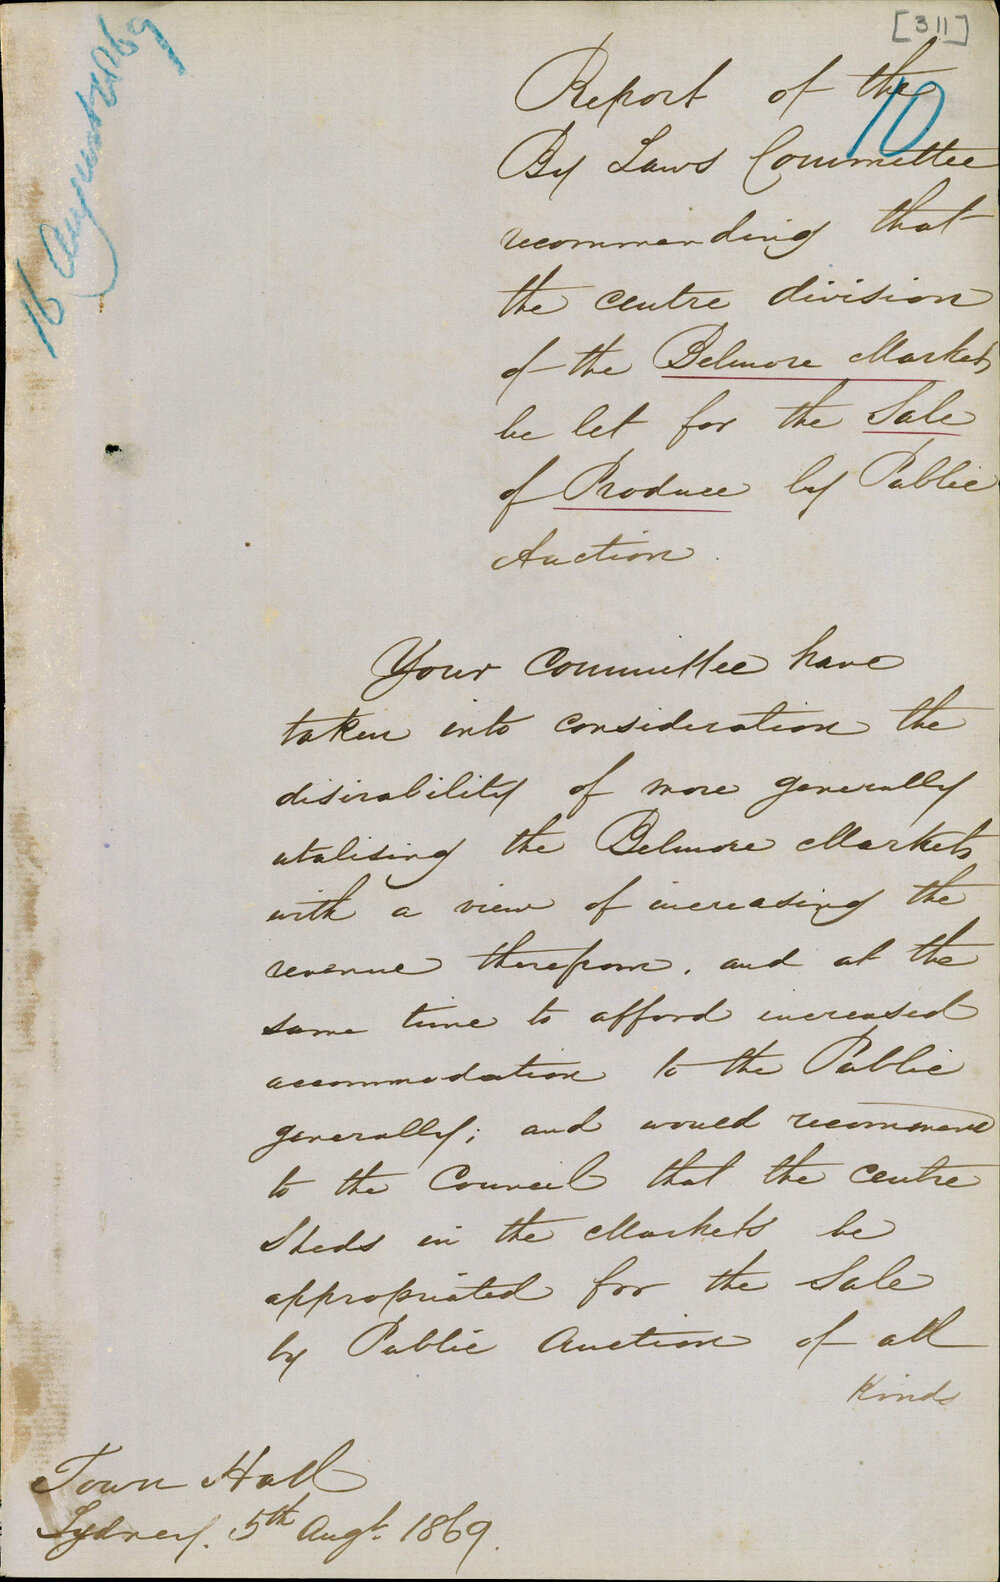 [311]
16 August 1869
10
Report of the
By Laws Committee
recommending that
the centre division
of the Belmore Markets
be let for the Sale
of Produce by Public
Auction.
Your Committee have
taken into consideration the
disirability of more generally
utalising the Belmore Markets
with a view of increasing the
revenue therefrom, and at the
same time to afford increased
accommodation to the Public
generally; and would recommend
to the Council that the centre
Sheds in the Markets be
appropriated for the Sale
by Public Auction of all
Kinds
Town Hall
Sydney. 5th Augt. 1869.